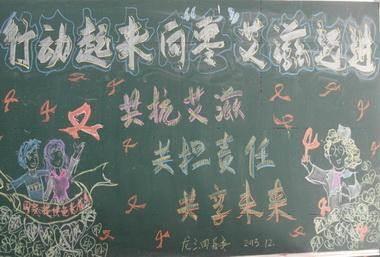 行动起来 向“零”艾滋迈进
共抗艾滋
共担责任
共享未来
2013.12.